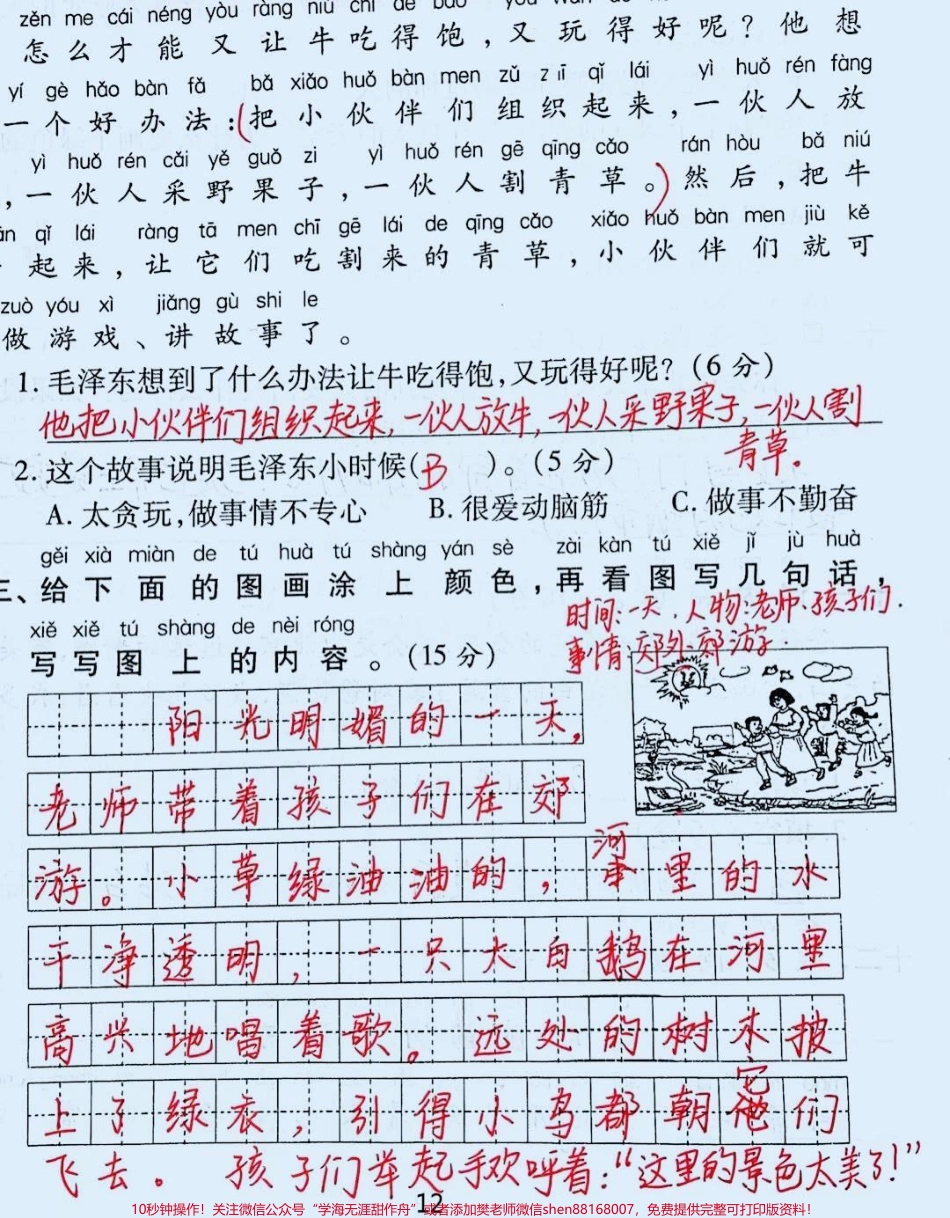 zěn me cái néng yòu ràng niú chī de bǎo
怎么才能又让牛吃得饱，又玩得好呢？他想
yí gè hǎo bàn fǎ bǎ xiǎo huǒ bàn men zǔ z qǐ lái yì huǒ rén fàng
一个好办法：(把小伙伴们组织起来，一伙人放
yì huǒ rén cǎi yě guǒ zi yì huǒ rén gē qīng cǎo rán hòu bǎ niú
，一伙人采野果子，一伙人割青草。)然后，把牛
qǐ lái ràng tā men chī gē lái de qīng cǎo xiǎo huǒ bàn men jiù kě
起来，让它们吃割来的青草，小伙伴们就可
zuò yóu xì jiǎng gù shi le
做游戏、讲故事了。
1. 毛泽东想到了什么办法让牛吃得饱,又玩得好呢？(6分)
他把小伙伴们组织起来,一伙人放牛,一伙人采野果子,一伙人割
青草.
2. 这个故事说明毛泽东小时候( B )。(5分)
A. 太贪玩,做事情不专心 B. 很爱动脑筋 C. 做事不勤奋
gěi xià miàn de tú huà tú shàng yán sè zài kàn tú xiě jǐ jù huà
三、给下面的图画涂上颜色，再看图写几句话，
时间:一天.人物:老师.孩子们.
xiě xiě tú shàng de nèi róng
写写图上的内容。(15分)
事情:郊外.郊游.
阳光明媚的一天,
老师带着孩子们在郊
游。小草绿油油的，河里的水
干净透明，一只大白鹅在河里
高兴地唱着歌。远处的树木披
上了绿衣，引得小鸟都朝它们
飞去。孩子们举起手欢呼着:“这里的景色太美了!”
12
10秒钟操作！关注微信公众号“学海无涯甜作舟”或者添加樊老师微信shen88168007，免费提供完整可打印版资料！